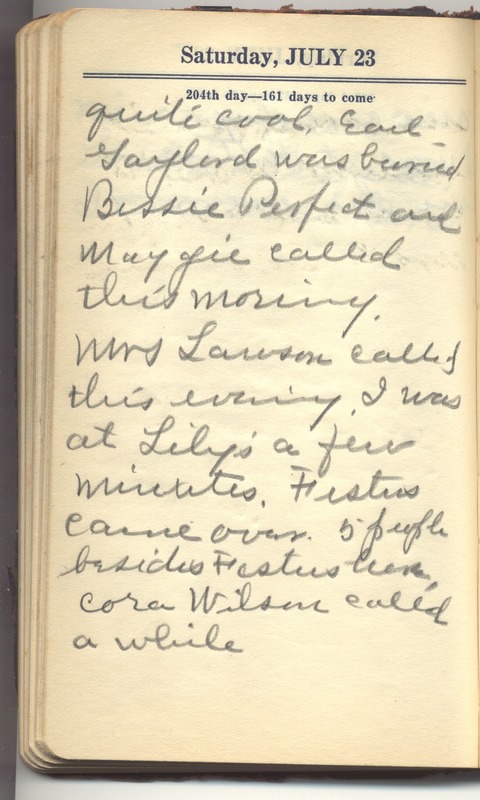 Saturday, JULY 23
204th day—161 days to come
quite cool, Earl
Gaylord was buried
Bessie Perfect and
Maggie called
this morning.
Mrs Lawson called
this evening. I was
at Lily's a few
minutes. Festus
came over. 5 people
besides Festus here,
Cora Wilson called
a while